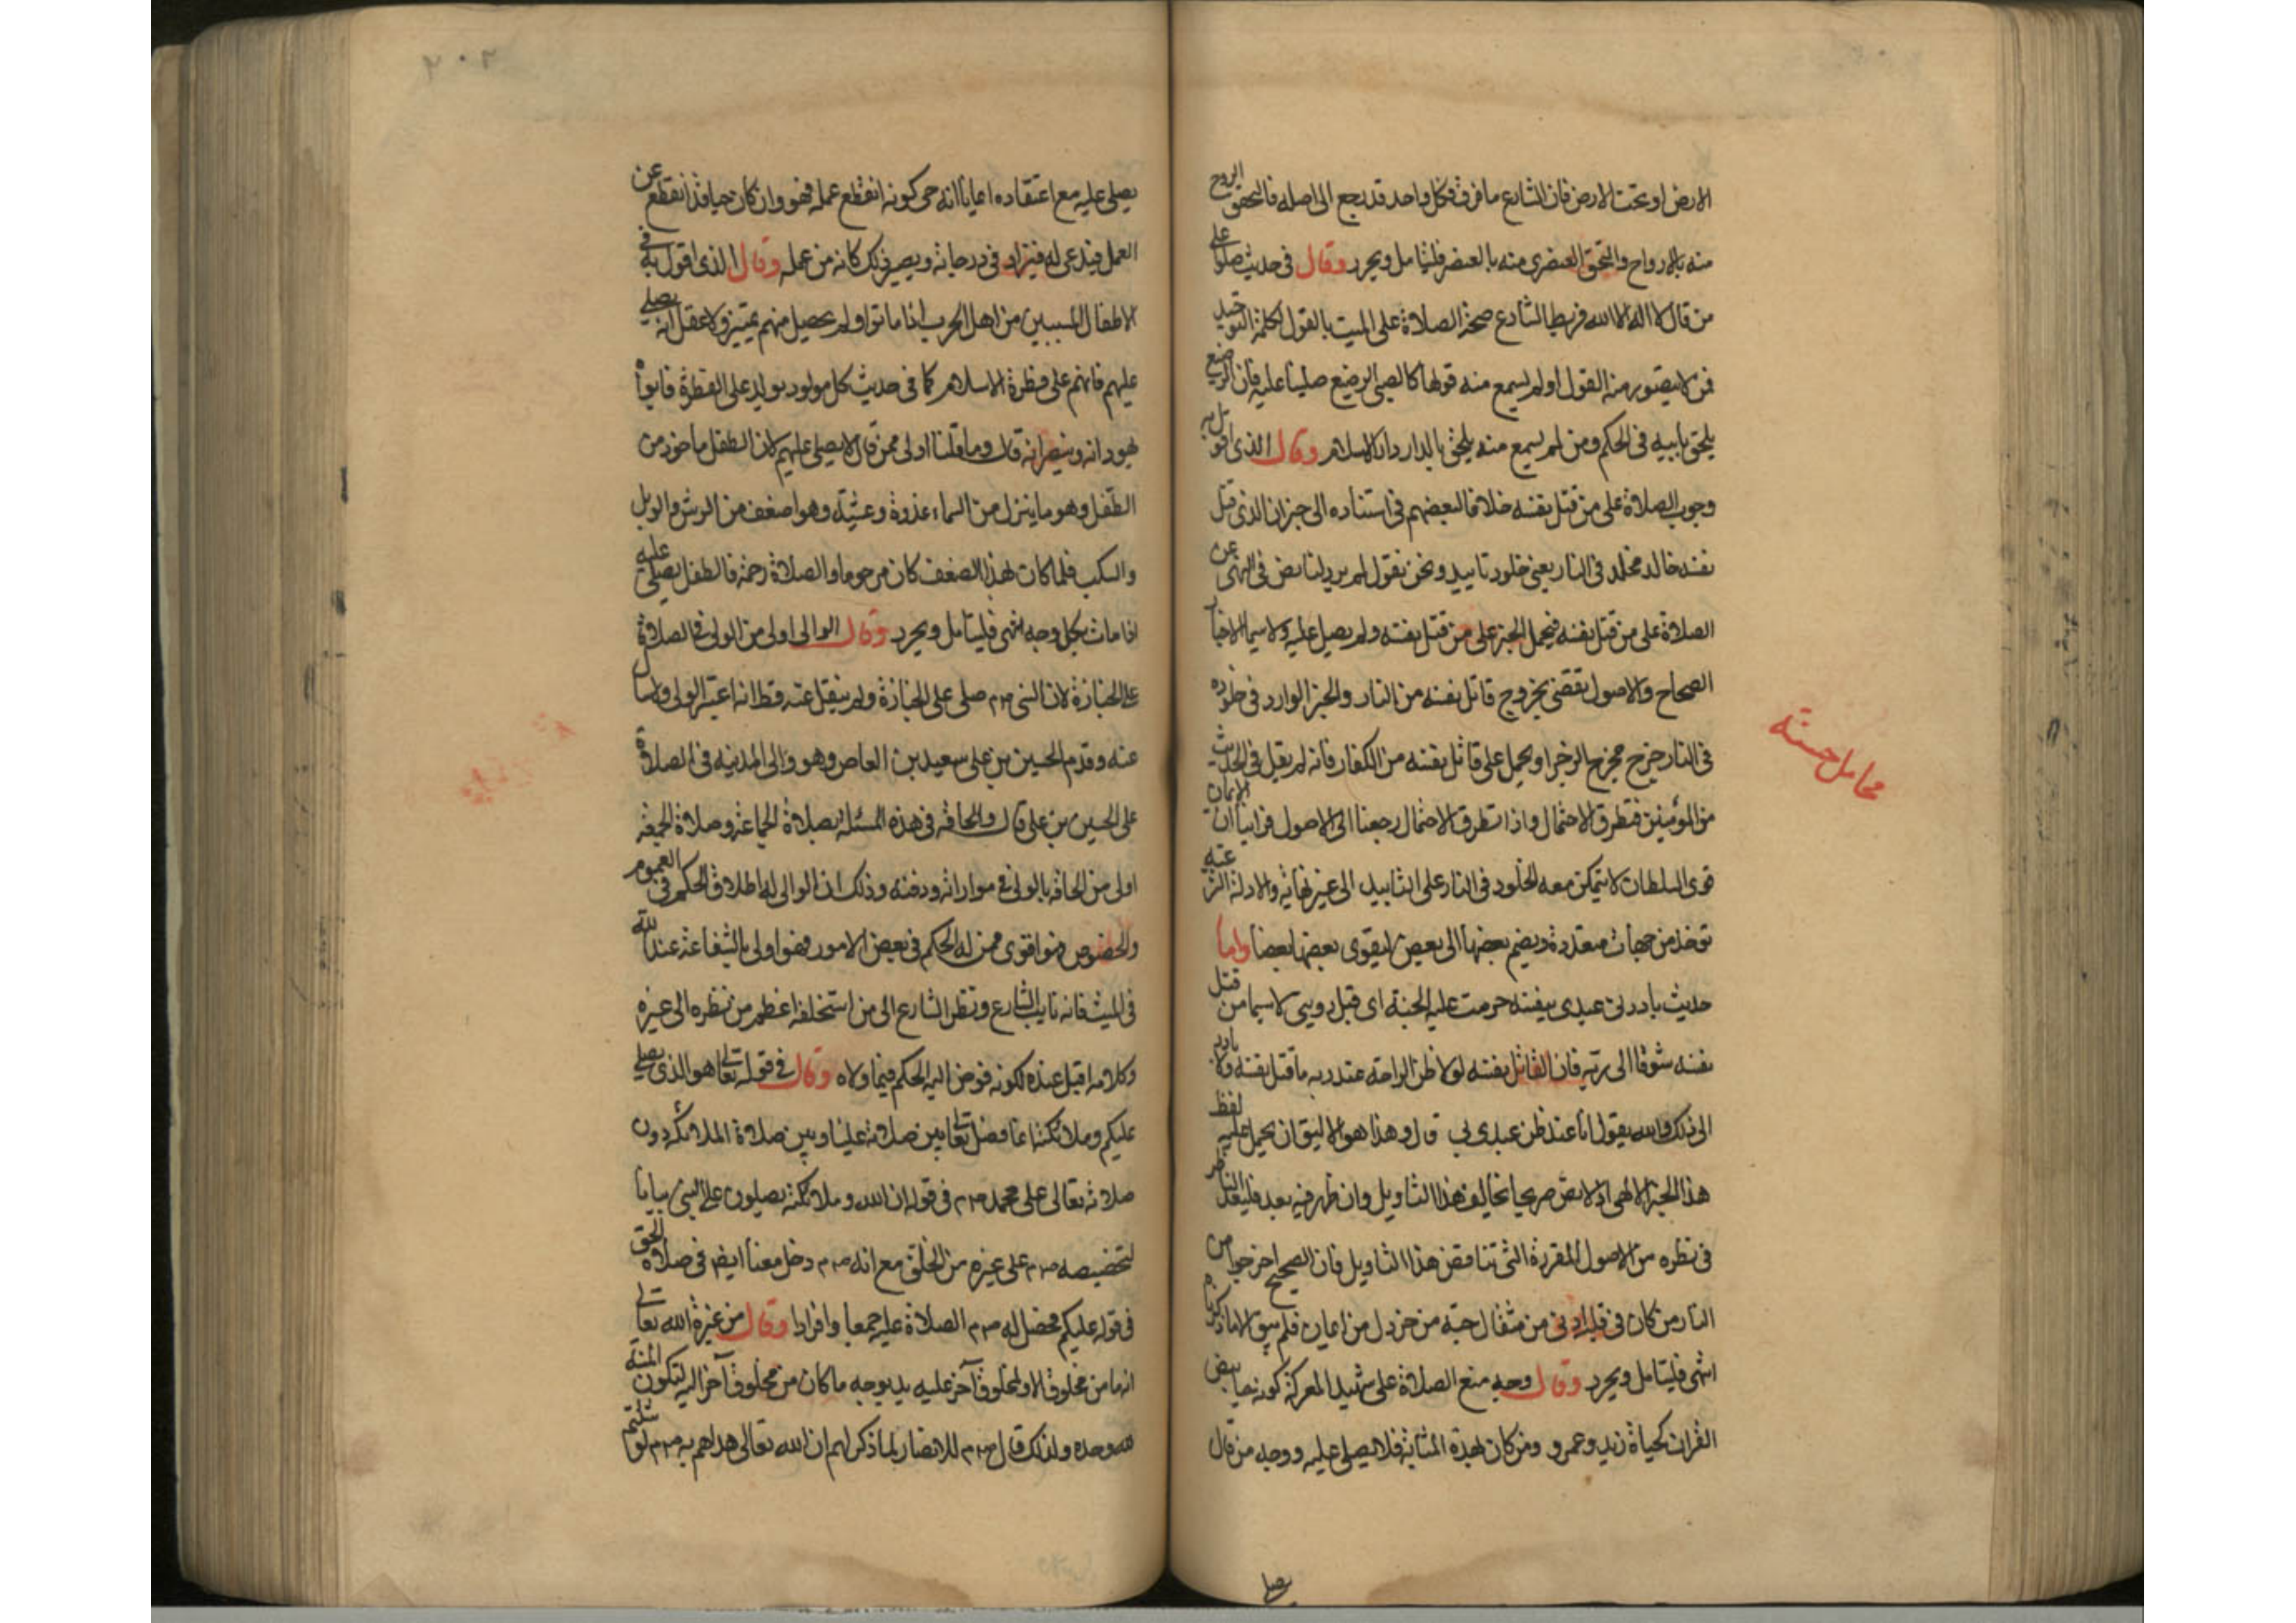 الارض او تحت الارض فان الشارع ما فرق فكل واحد قد رجع الى اصله فالتحق الروح
منه بالارواح والتحق العنصري منه بالعنصر فليتامل ويحرر وقال في حديث صلوا على
من قال لا اله الا الله فربط الشارع صحة الصلاة على الميت بالقول لكلمة التوحيد
فمن لا يتصور منه القول او لم يسمع منه قولها كالصبي الرضيع صلينا عليه فان الرضيع
يلحق بابيه في الحكم ومن لم يسمع منه يلحق بالدار دار الاسلام وقال الذي اقول به
وجوب الصلاة على من قتل نفسه خلافا لبعضهم في استناده الى خبر ان الذي قتل
نفسه خالد مخلد في النار يعني خلود تابيد ونحن نقول لم يرد لنا نص في النهي عن
الصلاة على من قتل نفسه فيحمل الخبر على من قتل نفسه ولم يصل عليه ولا سيما الاخبار
الصحاح والاصول تقضي بخروج قاتل نفسه من النار والخبر الوارد في خلوده
في النار خرج مخرج الزجر او يحمل على قاتل نفسه من الكفار فانه لم يقل في الحديث
من المؤمنين فتطرق الاحتمال واذا تطرق الاحتمال رجعنا الى الاصول فراينا ان الايمان
قوى السلطان لا يتمكن معه الخلود في النار على التابيد الى غير نهاية والادلة الشرعية
توخذ من جهات متعددة ويضم بعضها الى بعض ليقوى بعضها بعضا واما
حديث بادرني عبدي بنفسه حرمت عليه الجنة اي قبل رويتي لا سيما من قتل
نفسه شوقا الى ربه فان القاتل نفسه لولا ظن الراحة عند ربه ما قتل نفسه ولا بادر
الى ذلك والله يقول انا عند ظن عبدي بي قال وهذا هو الاليق ان يحمل عليه لفظ
هذا الخبر الالهي اذ لا نص صريحا يخالف هذا التاويل وان ظهر فيه بعد فلبعد الناظر
في نظره من الاصول المقررة التي تناقض هذا التاويل فان الصحيح اخرجوا من
النار من كان في قلبه ادنى من مثقال حبة من خردل من ايمان فلم يبق الا ما ذكرناه
انتهى فليتامل ويحرر وقال وجه منع الصلاة على شهيد المعركة كونه حيا بنص
القران كحياة زيد وعمرو ومن كان بهذه المثابة فلا يصلى عليه ووجه من قال
محامل حسنة
يصلي
٢٠٢
يصلى عليه مع اعتقاده ايمانا انه حي كونه انقطع عمله فهو وان كان حيا فقد انقطع عن
العمل فيدعى له فيزاد في درجاته ويصير ذلك كانه من عمله وقال الذي اقول به في
الاطفال المسبيين من اهل الحرب اذا ماتوا ولم يحصل منهم تمييز ولا عقل انه يصلى
عليهم فانهم على فطرة الاسلام كما في حديث كل مولود يولد على الفطرة فابواه
يهودانه وينصرانه قال وما قلنا اولى ممن قال لا يصلى عليهم لان الطفل ماخوذ من
الطفل وهو ما ينزل من السماء غدوة وعشية وهو اضعف من الرش والوبل
والسكب فلما كان بهذا الضعف كان مرحوما والصلاة رحمة فالطفل يصلى عليه
اذا مات بكل وجه انتهى فليتامل ويحرر وقال الوالي اولى من الولي في الصلاة
على الجنازة لان النبي صم صلى على الجنازة ولم ينقل عنه قط انه اعتبر الولي ولا سال
عنه وقدم الحسين بن علي سعيد بن العاص وهو والي المدينه في الصلاة
على الحسن بن علي قال والحاقه في هذه المسئلة بصلاة الجماعة وصلاة الجمعة
اولى من الحاقه بالولي في مواراته ودفنه وذلك ان الوالي له اطلاق الحكم في العموم
والخصوص فهو اقوى ممن له الحكم في بعض الامور فهو اولى بالشفاعة عند الله
في الميت فانه نايب الشارع ونظر الشارع الى من استخلفه اعظم من نظره الى غيره
وكلامه اقبل عنده لكونه فوض اليه الحكم فيما ولاه وقال في قوله تعالى هو الذي يصلي
عليكم وملائكته انما فصل تعالى بين صلاته علينا وبين صلاة الملائكة دون
صلاته تعالى على محمد صم في قوله ان الله وملائكته يصلون على النبي بيانا
لتخصيصه صم على غيره من الخلق مع انه صم دخل معنا ايضا في صلاة الحق
في قوله عليكم فحصل له صم الصلاة عليه جمعا وافرادا وقال من غيرة الله تعالى
انه ما من مخلوق الا ولمخلوق آخر عليه يد بوجه ما كان من مخلوق آخر اليه لتكون المنة
لله وحده ولذلك قال صم للانصار لما ذكر لهم ان الله تعالى هداهم به صم لو قلتم